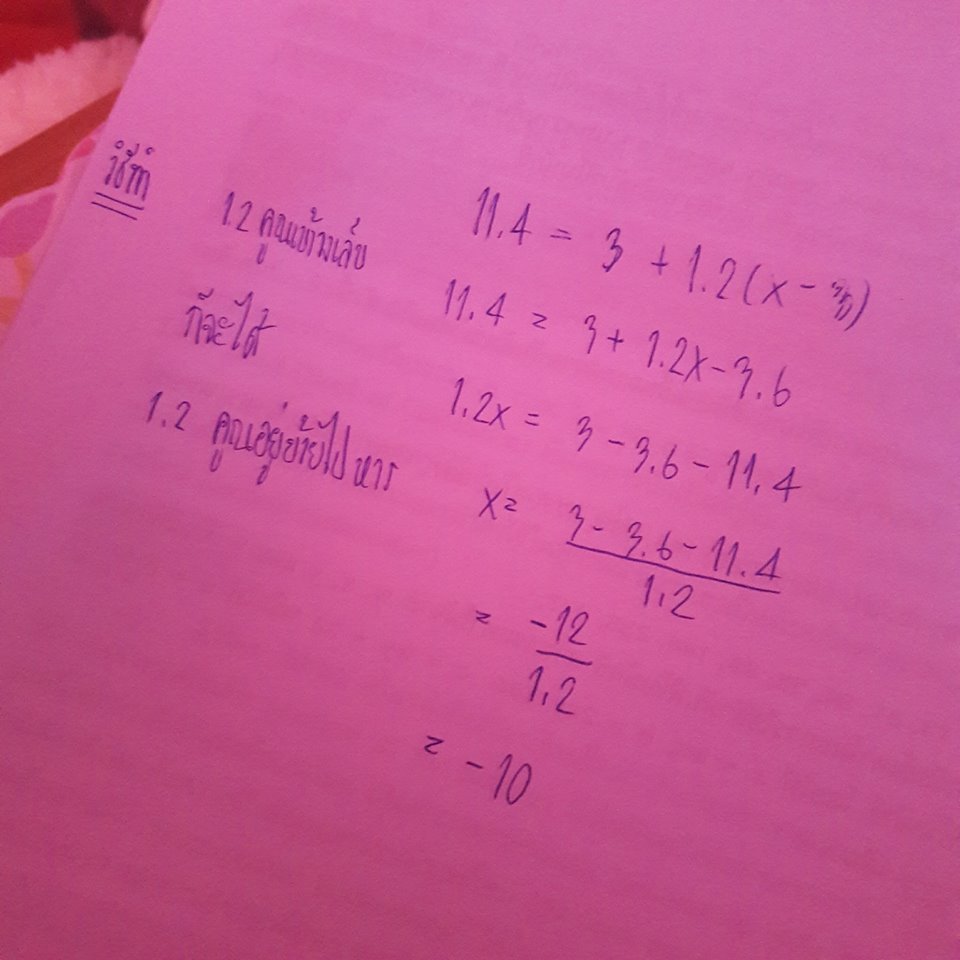 วิธีทำ
11.4 = 3 + 1.2(x - 3)
1.2 คูณเข้าวงเล็บ 11.4 = 3 + 1.2x - 3.6
ก็จะได้ 1.2x = 3 - 3.6 - 11.4
1.2 คูณอยู่ย้ายไปหาร x = 3 - 3.6 - 11.4
1.2
= -12
1.2
= -10